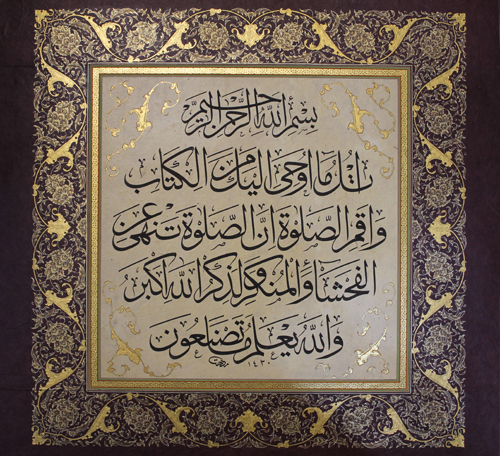 بسم الله الرحمن الرحيم
اتل ما اوحى اليك من الكتاب
واقم الصلوة ان الصلوة تنهى عن
الفحشاء والمنكر ولذكر الله اكبر
والله يعلم ما تصنعون
١٤٣٠